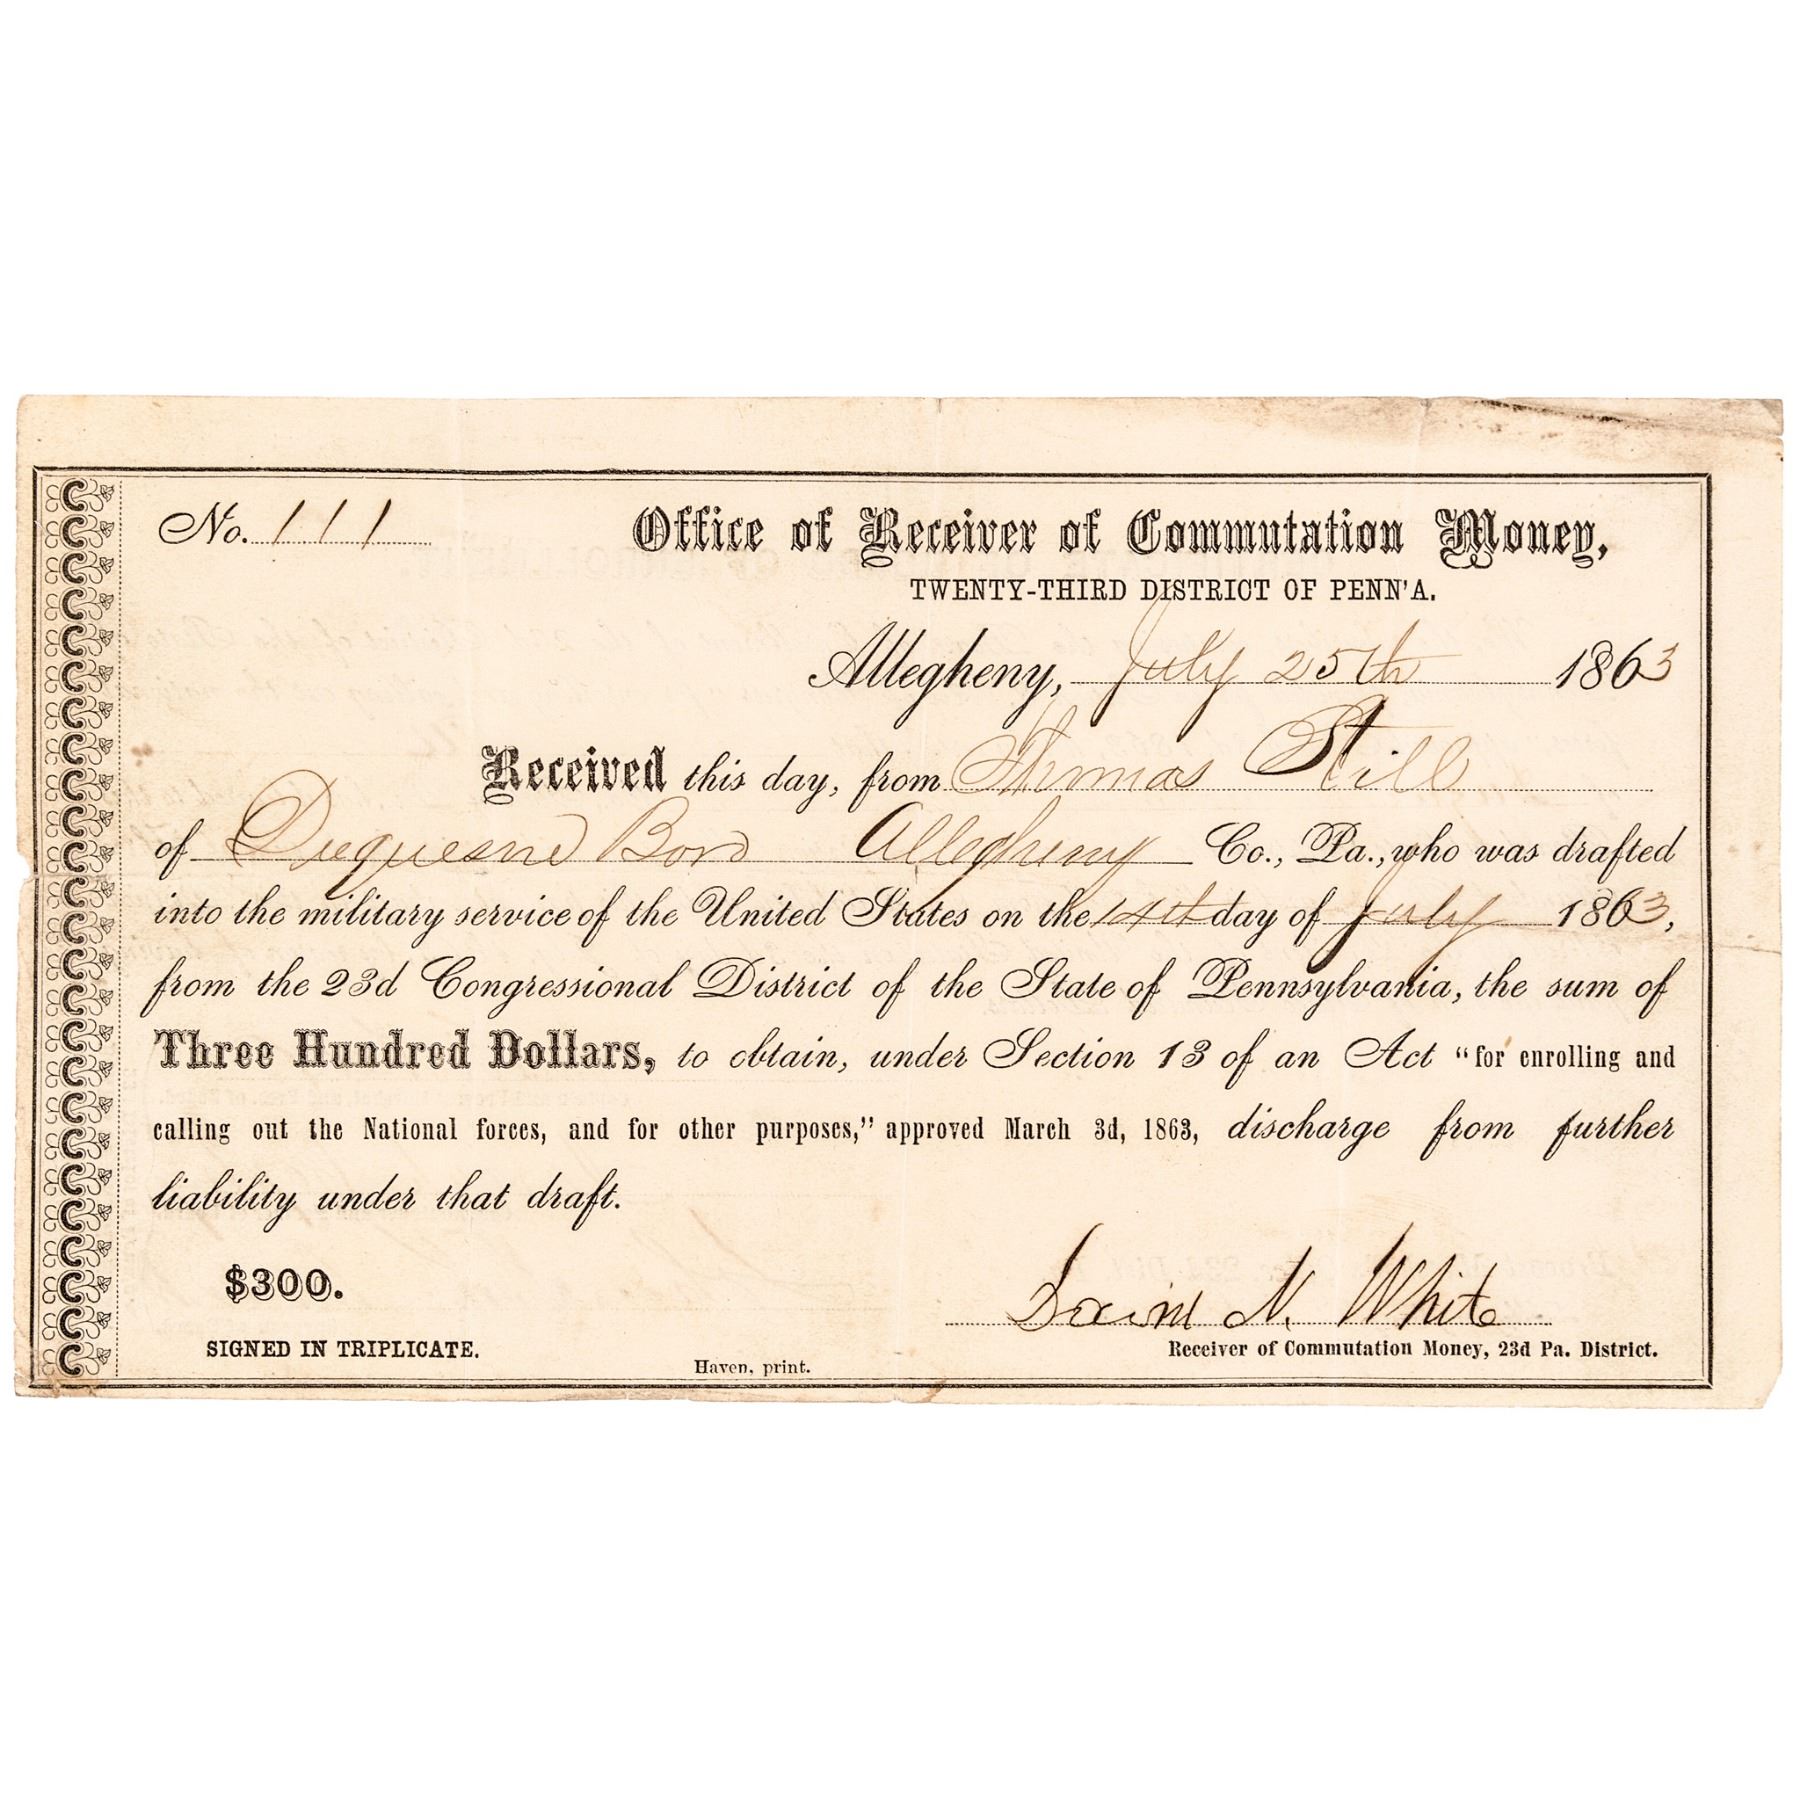 No. 111
Office of Receiver of Commutation Money,
TWENTY-THIRD DISTRICT OF PENN'A.
Allegheny, July 25th 1863
Received this day, from Thomas Still
of Duquesne Boro Allegheny Co., Pa., who was drafted
into the military service of the United States on the 14th day of July 1863,
from the 23d Congressional District of the State of Pennsylvania, the sum of
Three Hundred Dollars, to obtain, under Section 13 of an Act "for enrolling and
calling out the National forces, and for other purposes," approved March 3d, 1863, discharge from further
liability under that draft.
$300.
David N. White
SIGNED IN TRIPLICATE.
Haven, print.
Receiver of Commutation Money, 23d Pa. District.